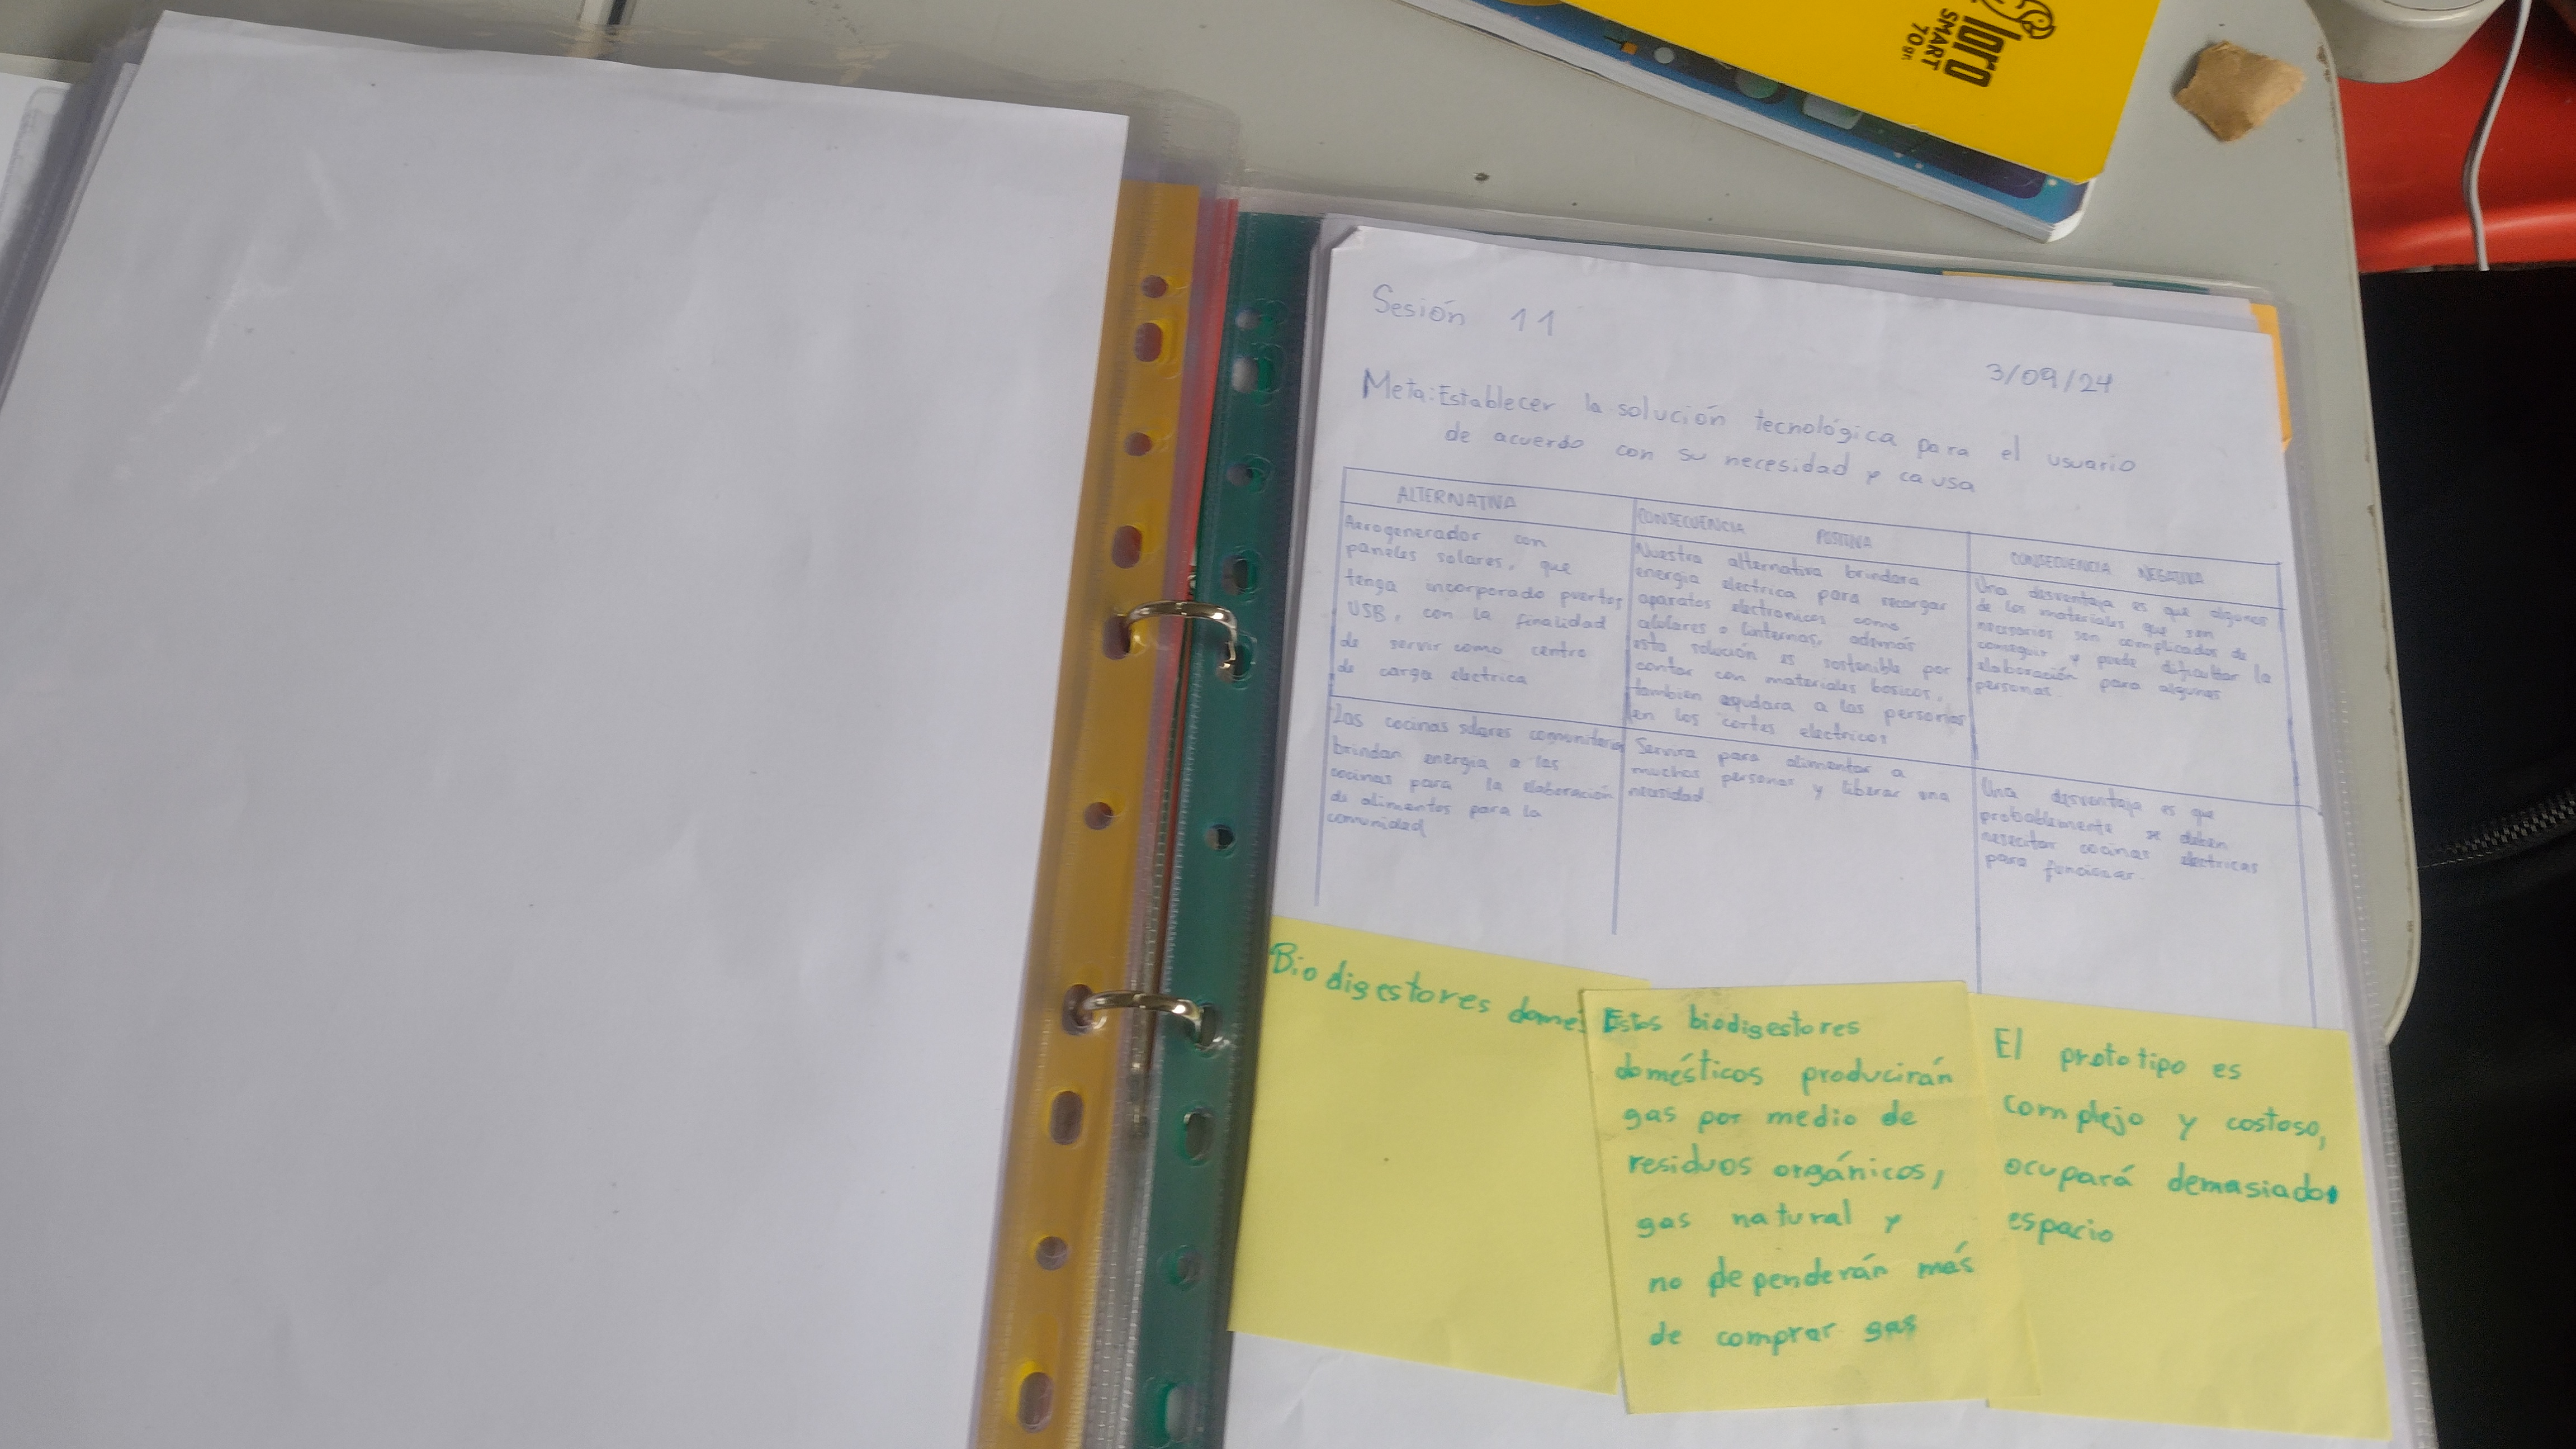 loro
SMART
70gr.
Sesión 11
3/09/24
Meta: Establecer la solución tecnológica para el usuario
de acuerdo con su necesidad y causa
ALTERNATIVA
Aerogenerador con
paneles solares, que
tenga incorporado puertos
USB, con la finalidad
de servir como centro
de carga electrica
CONSECUENCIA POSITIVA
Nuestra alternativa brindara
energia electrica para recargar
aparatos electronicos como
celulares o linternas, además
esta solución es sostenible por
contar con materiales basicos,
tambien ayudara a las personas
en los cortes electricos
CONSECUENCIA NEGATIVA
Una desventaja es que algunos
de los materiales que son
necesarios son complicados de
conseguir y puede dificultar la
elaboración para algunas
personas.
Las cocinas solares comunitarias
brindan energia a las
cocinas para la elaboración
de alimentos para la
comunidad
Servira para alimentar a
muchas personas y liberar una
necesidad.
Una desventaja es que
probablemente se deben
nesecitar cocinas electricas
para funcionar.
Biodigestores dome
Estos biodigestores
domésticos producirán
gas por medio de
residuos orgánicos,
gas natural y
no dependerán más
de comprar gas
El prototipo es
complejo y costoso,
ocupará demasiado
espacio